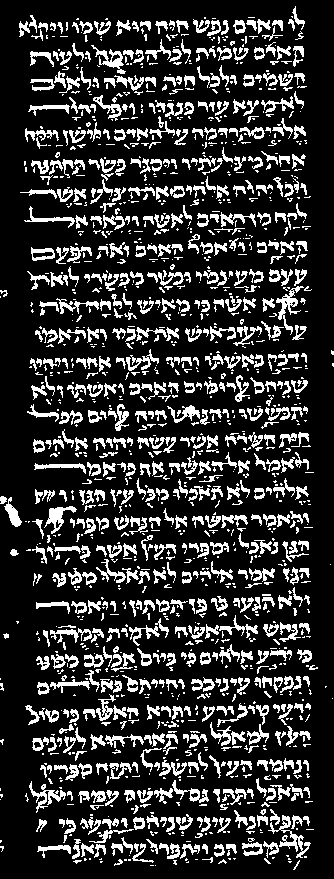 לו האדם נפש חיה הוא שמו ויקרא
האדם שמות לכל הבהמה ולעוף
השמים ולכל חית השדה ולאדם
לא מצא עזר כנגדו׃ ויפל יהוה
אלהים תרדמה על האדם ויישן ויקח
אחת מצלעתיו ויסגר בשר תחתנה׃
ויבן יהוה אלהים את הצלע אשר
לקח מן האדם לאשה ויבאה אל
האדם׃ ויאמר האדם זאת הפעם
עצם מעצמי ובשר מבשרי לזאת
יקרא אשה כי מאיש לקחה זאת׃
על כן יעזב איש את אביו ואת אמו
ודבק באשתו והיו לבשר אחד׃ ויהיו
שניהם ערומים האדם ואשתו ולא
יתבששו׃ והנחש היה ערום מכל
חית השדה אשר עשה יהוה אלהים
ויאמר אל האשה אף כי אמר
אלהים לא תאכלו מכל עץ הגן׃
ותאמר האשה אל הנחש מפרי עץ
הגן נאכל׃ ומפרי העץ אשר בתוך
הגן אמר אלהים לא תאכלו ממנו
ולא תגעו בו פן תמתון׃ ויאמר
הנחש אל האשה לא מות תמתון׃
כי ידע אלהים כי ביום אכלכם ממנו
ונפקחו עיניכם והייתם כאלהים
ידעי טוב ורע׃ ותרא האשה כי טוב
העץ למאכל וכי תאוה הוא לעינים
ונחמד העץ להשכיל ותקח מפריו
ותאכל ותתן גם לאישה עמה ויאכל׃
ותפקחנה עיני שניהם וידעו כי
עירמים הם ויתפרו עלה תאנה